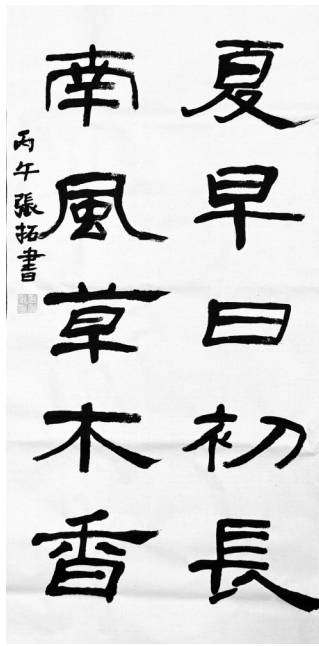 夏早日初長
南風草木香
丙午張拓書